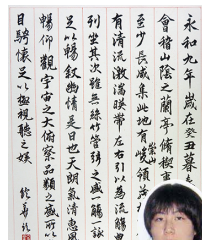 永和九年歲在癸丑暮春
會稽山陰之蘭亭脩稧事
至少長咸集此地有崇山峻領茂
有清流激湍暎帶左右引以為流觴
列坐其次雖無絲竹管弦之盛一觴一詠
足以暢叙幽情是日也天朗氣清惠風
暢仰觀宇宙之大俯察品類之盛所以
目騁懷足以極視聽之娛